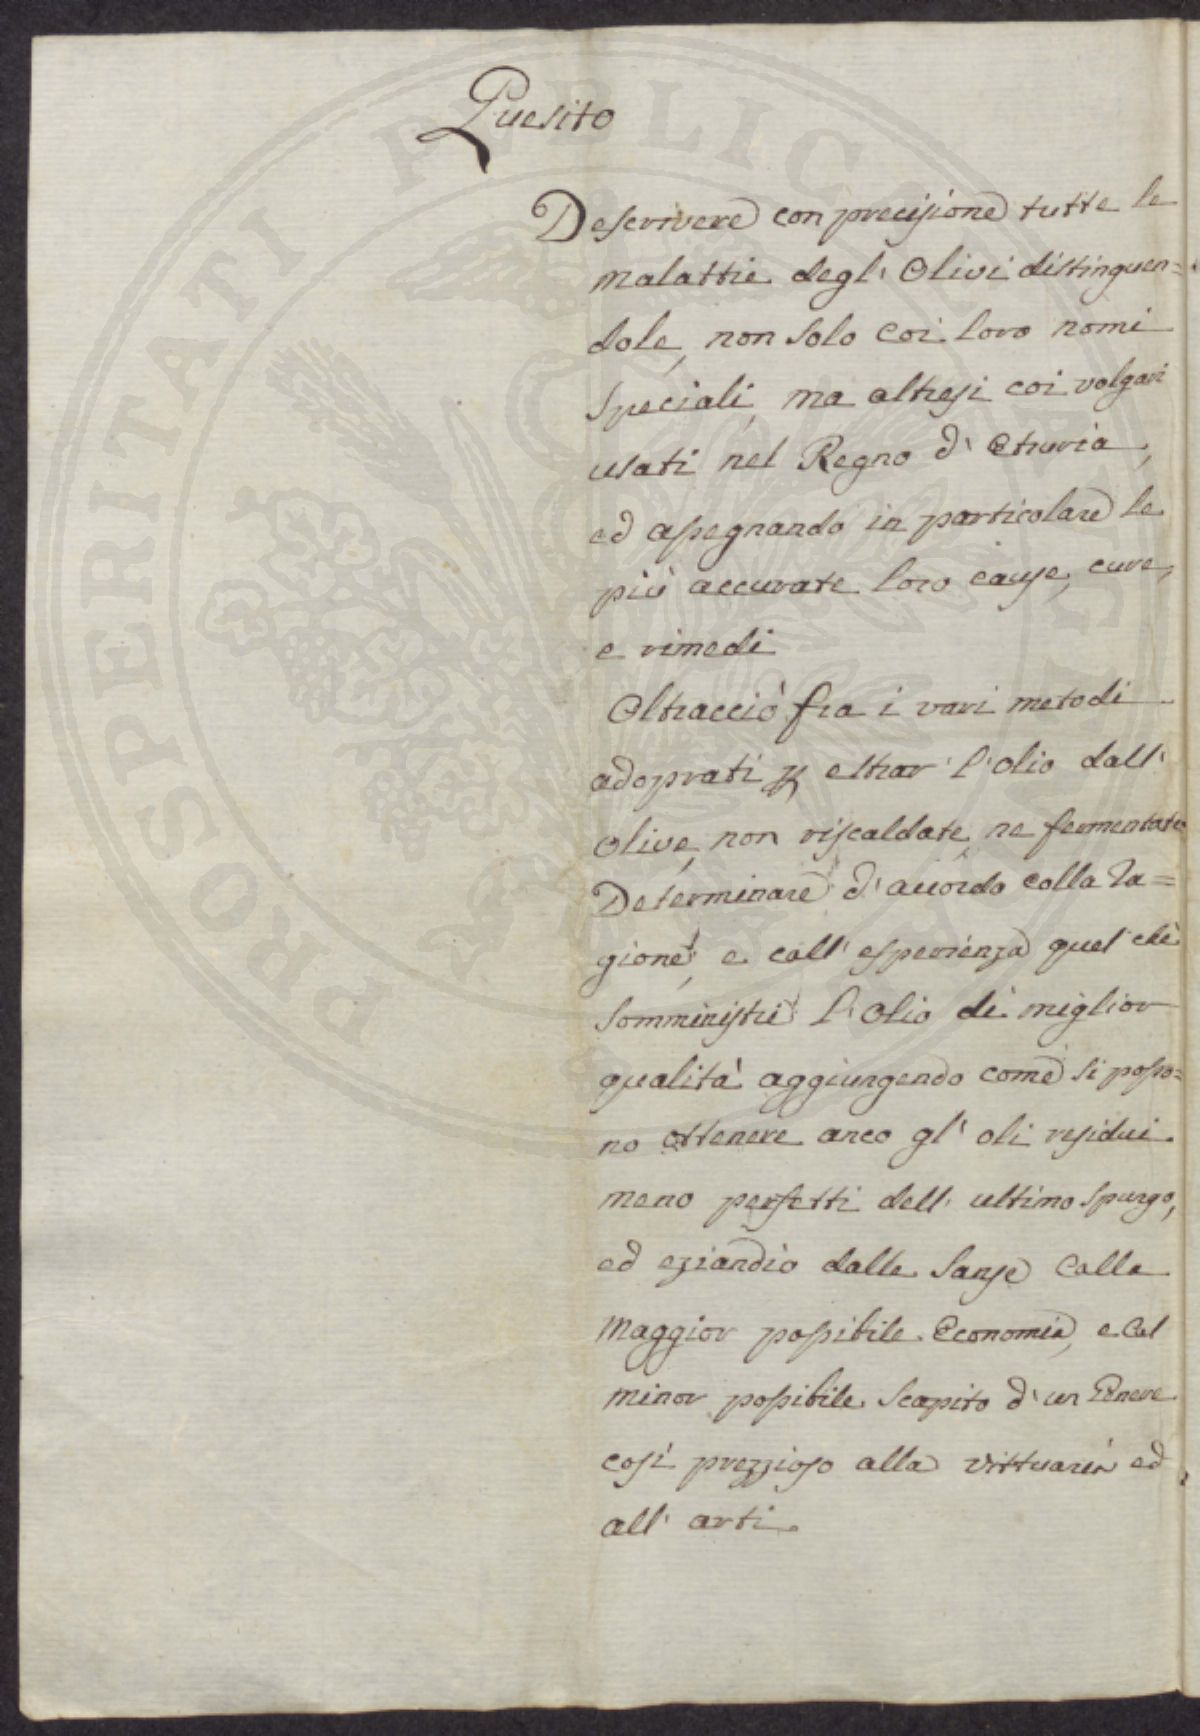 Quesito
Descrivere con precisione tutte le
malattie degl' Olivi distinguen=
dole, non solo coi loro nomi
speciali, ma altresi coi volgari
usati nel Regno d' Etruria,
ed assegnando in particolare le
più accurate loro cause, cure,
e rimedi
Oltracciò fra i vari metodi
adoprati p estrar l'olio dall'
olive, non riscaldate, ne fermentate
Determinare d' accordo colla Ra=
gione, e coll' esperienza quel che
somministri l' olio di miglior
qualità aggiungendo come si posso=
no ottenere anco gl' oli residui
meno perfetti dell' ultimo spurgo,
ed eziandio dalle Sanse Colla
maggior possibile Economia, e Col
minor possibile scapito d' un Genere
così prezzioso alla vittuaria ed
all' arti.
PROSPERITATI PUBLICAE